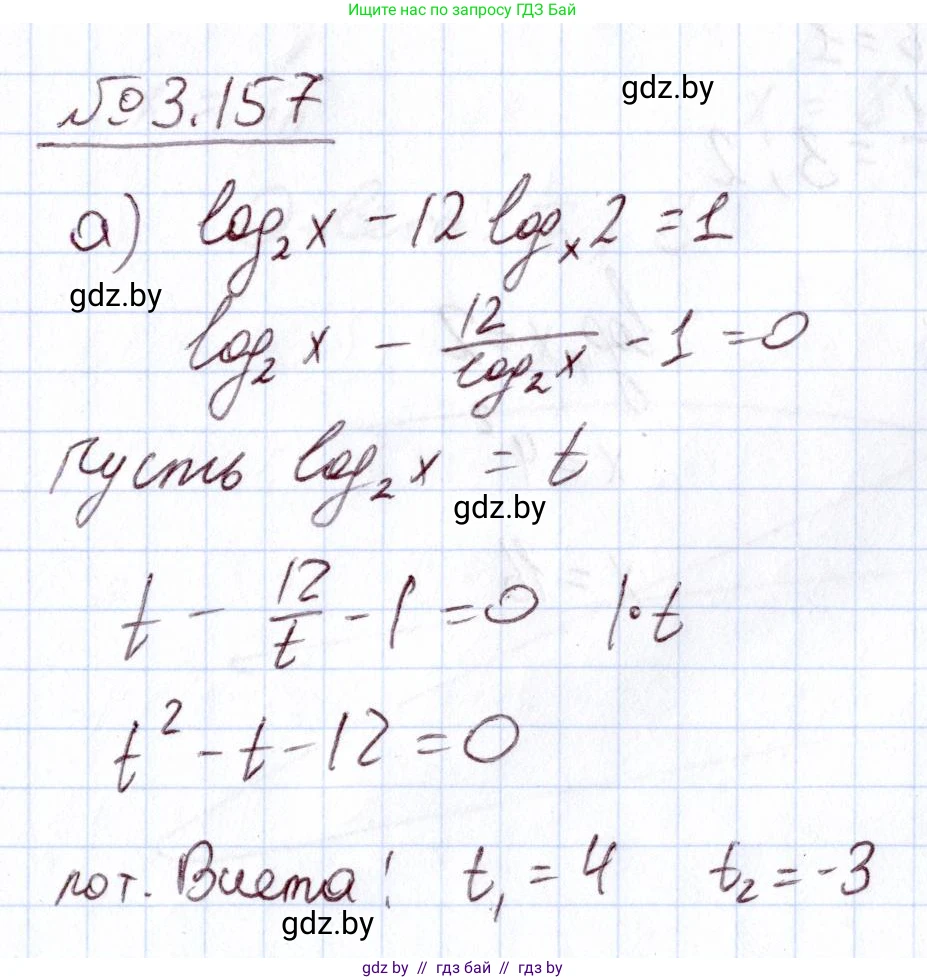 Ищите нас по запросу ГДЗ Бай
№ 3.157
gdz.by
а) log₂x - 12 logₓ2 = 1
gdz.by
log₂x - 12/log₂x - 1 = 0
Пусть log₂x = t
gdz.by
t - 12/t - 1 = 0 |·t
t² - t - 12 = 0
по т. Виета: t₁ = 4 t₂ = -3
gdz.by
gdz.by // гдз бай // gdz by